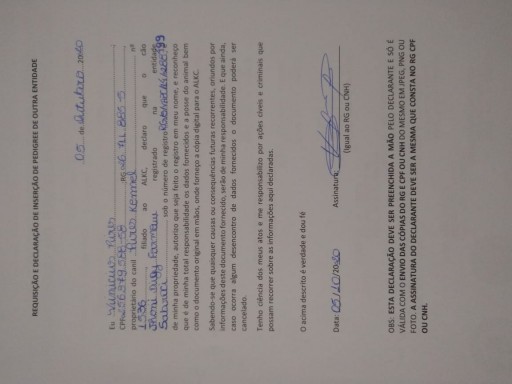 REQUISIÇÃO E DECLARAÇÃO DE INSERÇÃO DE PEDIGREE DE OUTRA ENTIDADE
05 de Outubro 2020
Eu
CPF RG
proprietário do canil Kennel nº
1536 filiado ao ALKC, declaro que o cão
registrado na entidade
sob o número de registro
de minha propriedade, autorizo que seja feito o registro em meu nome, e reconheço
que é de minha total responsabilidade os dados fornecidos e a posse do animal bem
como o documento original em mãos, onde forneço a cópia digital para o ALKC.
Sabendo-se que quaisquer causas ou consequências futuras recorrentes, oriundos por
informações deste documento fornecido, serão de minha responsabilidade. E que ainda,
caso ocorra algum desencontro de dados fornecidos o documento poderá ser
cancelado.
Tenho ciência dos meus atos e me responsabilizo por ações cíveis e criminais que
possam recorrer sobre as informações aqui declaradas.
O acima descrito é verdade e dou fé
Data: 05/10/2020 Assinatura:
(Igual ao RG ou CNH)
OBS: ESTA DECLARAÇÃO DEVE SER PREENCHIDA A MÃO PELO DECLARANTE E SÓ É
VÁLIDA COM O ENVIO DAS CÓPIAS DO RG E CPF OU CNH DO MESMO EM JPEG, PNG OU
FOTO. A ASSINATURA DO DECLARANTE DEVE SER A MESMA QUE CONSTA NO RG CPF
OU CNH.